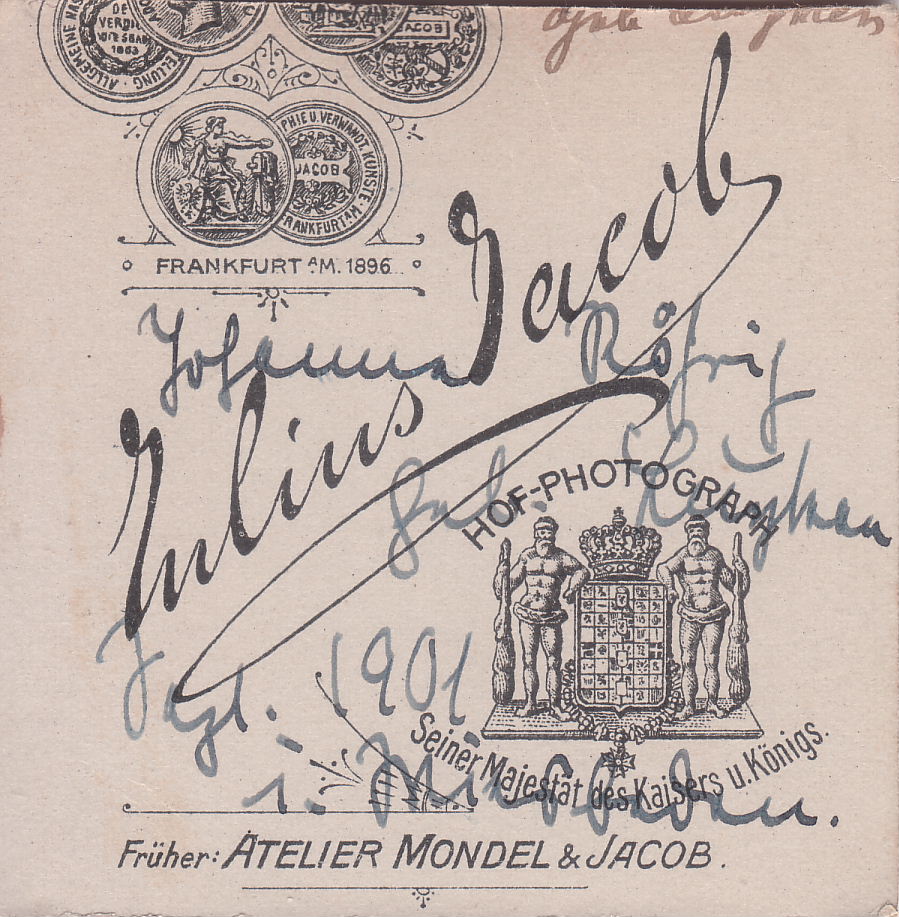 ALLGEMEINE
DE
VERDI
WIESBA
1863
JACOB
PHIE U. VERWANDT. KÜNSTE
JACOB
FRANKFURT A/M
FRANKFURT A.M. 1896.
Julius Jacob
Johanna Röhrig
geb.
HOF-PHOTOGRAPH
Sept. 1901
Seiner Majestät des Kaisers u. Königs.
i. Wiesbaden.
Früher: ATELIER MONDEL & JACOB.